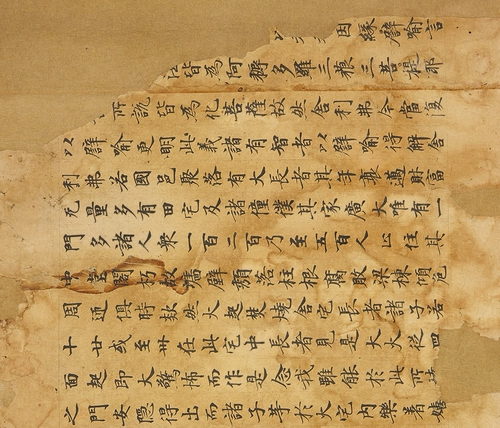 因緣譬喻言
皆為阿耨多羅三藐三菩提耶
所說皆為化菩薩故然舍利弗今當復
以譬喻更明此義諸有智者以譬喻得解舍
利弗若國邑聚落有大長者其年衰邁財富
无量多有田宅及諸僮僕其家廣大唯有一
門多諸人眾一百二百乃至五百人止住其
中堂閣朽故墻壁頹落柱根腐敗梁棟傾危
周迊俱時欻然火起焚燒舍宅長者諸子若
十廿或至卅在此宅中長者見是大火從四
面起即大驚怖而作是念我雖能於此所
之門安隱得出而諸子等於火宅內樂著嬉